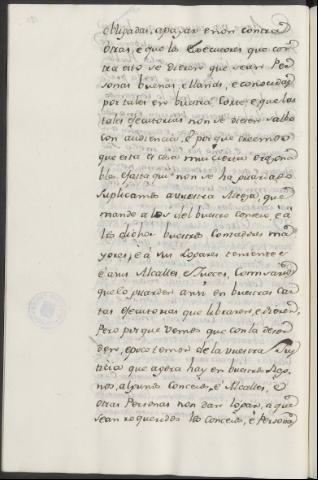 obligadas, a pagar en non contra
otras, e que los Executores que con
tra esto se dieren que sean Per
sonas buenas, llanas, e conocidas
por tales en buestra Corte, e que las
tales executorias non se dieren salbo
con audiencia, e porque creemos
que esta es cosa mui cierta e razona
ble, e fasta qui non se ha guardado
suplicamos a vuestra Alteza, que
mande a los del buestro Consejo, e a
los dichos buestros Contadores ma
yores, e a sus logares tenientes
e a sus Alcalles e Jueces, Comisarios
que lo guarden ansi en buestras car
tas executorias que libraren, e dieren,
Pero porque vemos que con la desor
den, e poco temor de la vuestra Jus
ticia que agora hay en buestros Reg
nos, algunos Concejos, e Alcalles, e
otras Personas non dan logar, a que
sean requeridos los Concejos, e Personas